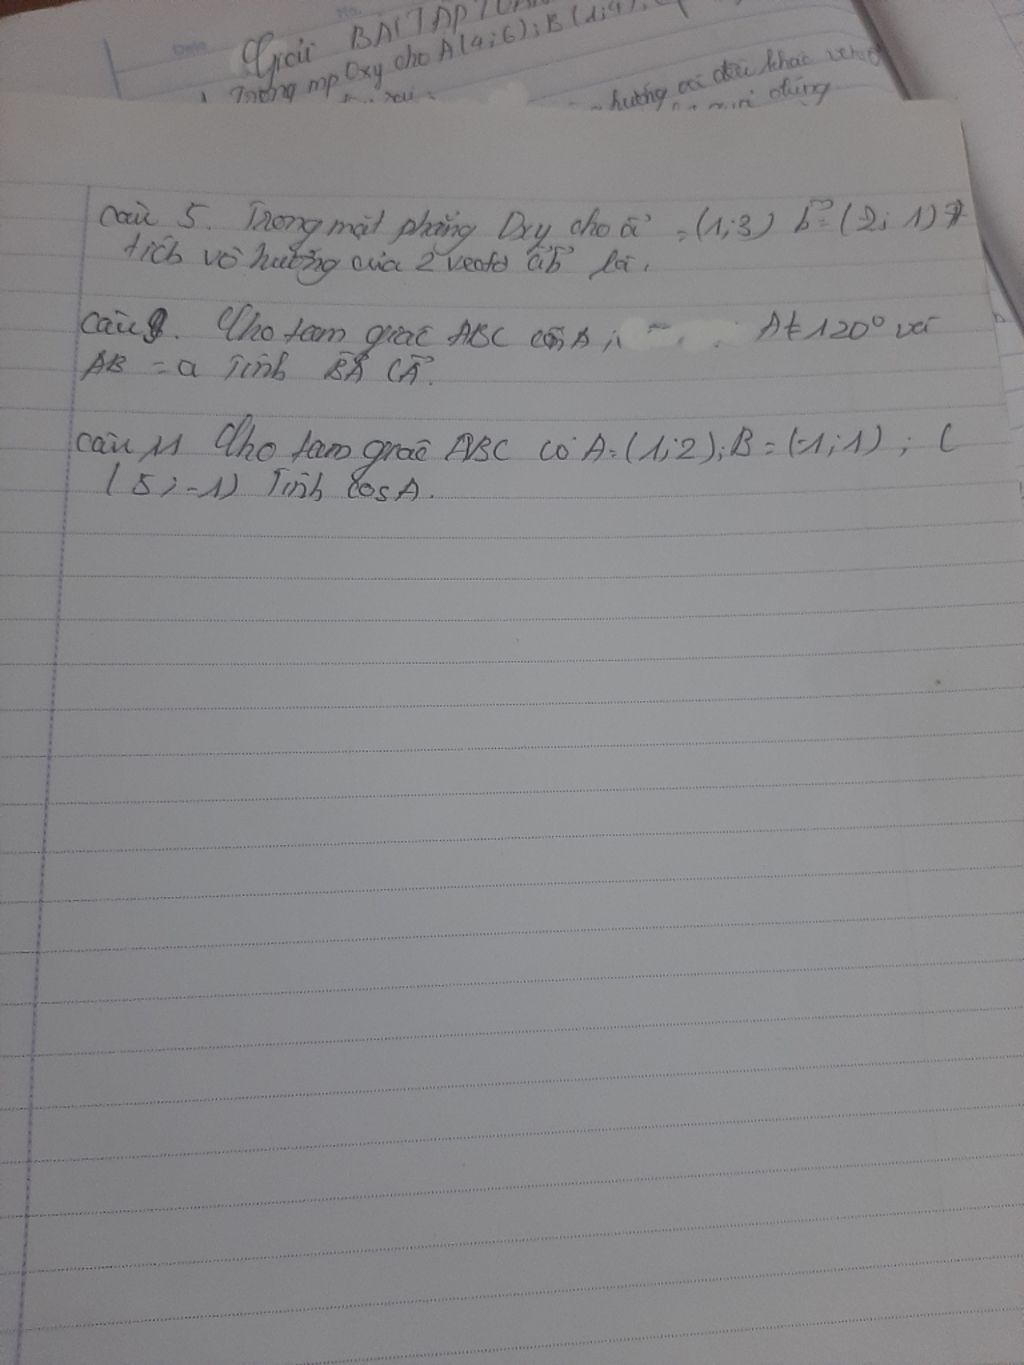 Giải BÀI TẬP TOÁN
Trong mp Oxy cho A(4;6); B(1;4);
hướng có đều khác vectơ
đúng
câu 5. Trong mặt phẳng Oxy cho a⃗ = (1;3) b⃗ = (2;1)
tích vô hướng của 2 vectơ a⃗b⃗ là.
câu 8. Cho tam giác ABC cân A; A = 120° và
AB = a Tính BA⃗ CA⃗.
câu 11 Cho tam giác ABC có A=(1;2); B=(-1;1); C
(5;-1) Tính cosA.